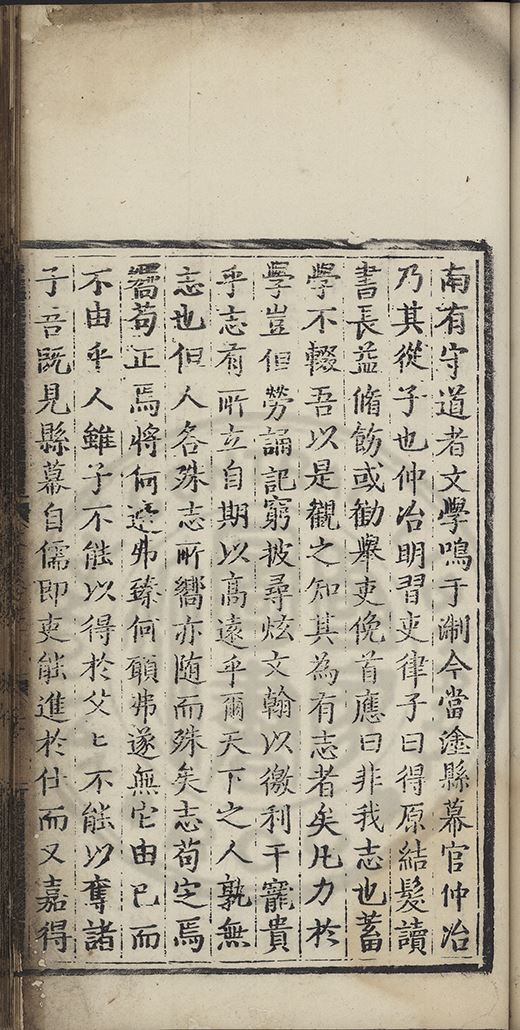 南有守道者文學鳴于淛今當塗縣幕官仲冶
乃其從子也仲冶明習吏律子曰得原結髮讀
書長益脩飭或勸舉吏俛首應曰非我志也蓄
學不輟吾以是觀之知其為有志者矣凡力於
學豈但勞誦記窮披尋炫文翰以徼利干寵貴
乎志有所立自期以高遠乎爾天下之人孰無
志也但人各殊志所嚮亦随而殊矣志苟定焉
嚮苟正焉將何造弗臻何願弗遂無它由已而
不由乎人雖子不能以得於父匕不能以奪諸
子吾既見縣幕自儒即吏能進於仕而又嘉得